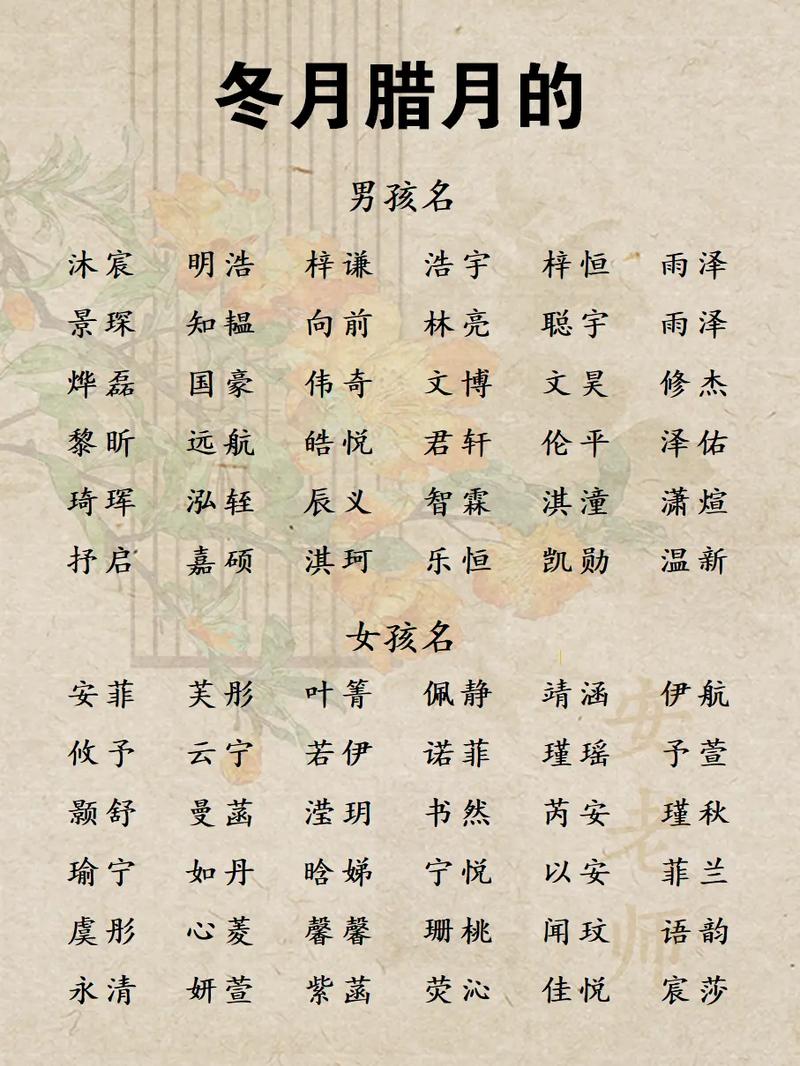 冬月腊月的
男孩名
沐宸 明浩 梓谦 浩宇 梓恒 雨泽
景琛 知韫 向前 林亮 聪宇 雨泽
烨磊 国豪 伟奇 文博 文昊 修杰
黎昕 远航 皓悦 君轩 伦平 泽佑
琦珲 泓轾 辰义 智霖 淇潼 潇煊
抒启 嘉硕 淇珂 乐恒 凯勋 温新
女孩名
安菲 芙彤 叶箐 佩静 靖涵 伊航
攸予 云宁 若伊 诺菲 瑾瑶 予萱
颢舒 曼菡 滢玥 书然 芮安 瑾秋
瑜宁 如丹 晗娣 宁悦 以安 菲兰
虞彤 心菱 馨馨 珊桃 闻玟 语韵
永清 妍萱 紫菡 荧沁 佳悦 宸莎
安老师